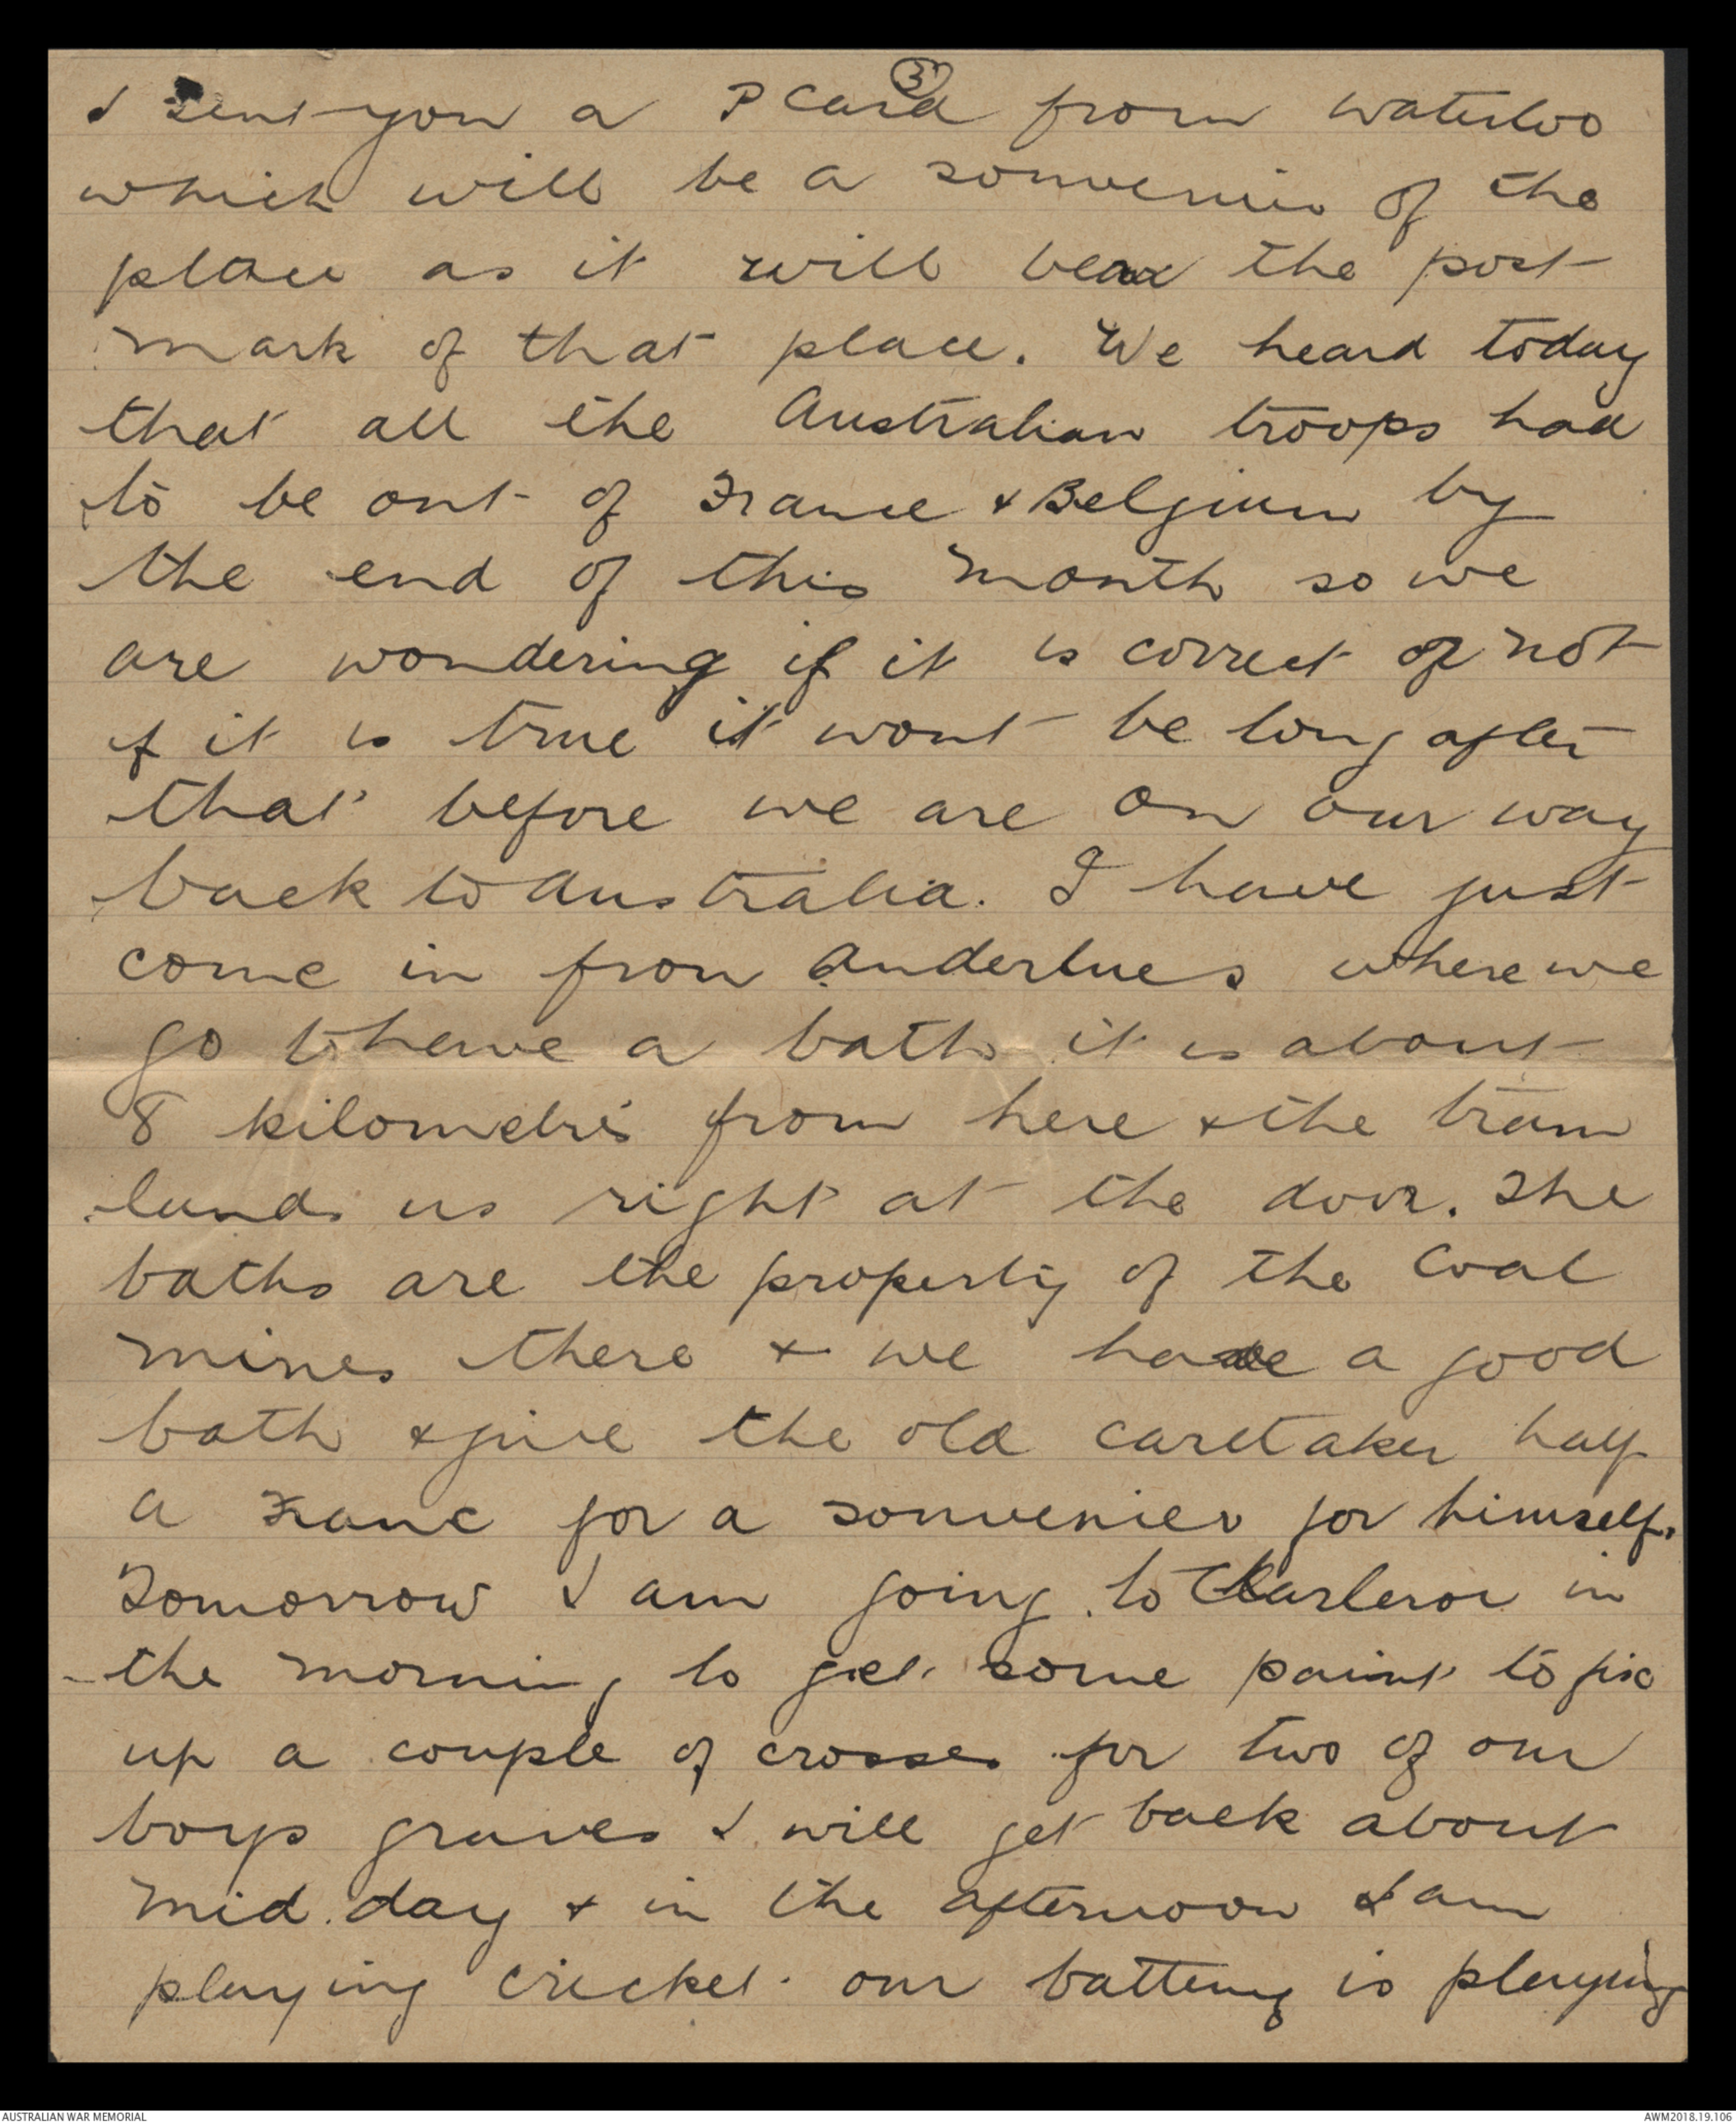 3
I sent you a P Card from Waterloo
which will be a souvenir of the
place as it will bear the post
mark of that place. We heard today
that all the Australian troops had
to be out of France & Belgium by
the end of this month so we
are wondering if it is correct or not
if it is true it wont be long after
that before we are on our way
back to Australia. I have just
come in from Anderlues where we
go to have a bath it is about
8 kilometres from here & the tram
lands us right at the door. The
baths are the property of the Coal
mines there & we have a good
bath & give the old caretaker half
a Franc for a souvenier for himself.
Tomorrow I am going to Charleroi in
the morning to get some paint to fix
up a couple of crosses for two of our
boys graves I will get back about
mid day & in the afternoon I am
playing cricket. our battery is playing
AUSTRALIAN WAR MEMORIAL
AWM2018.19.106